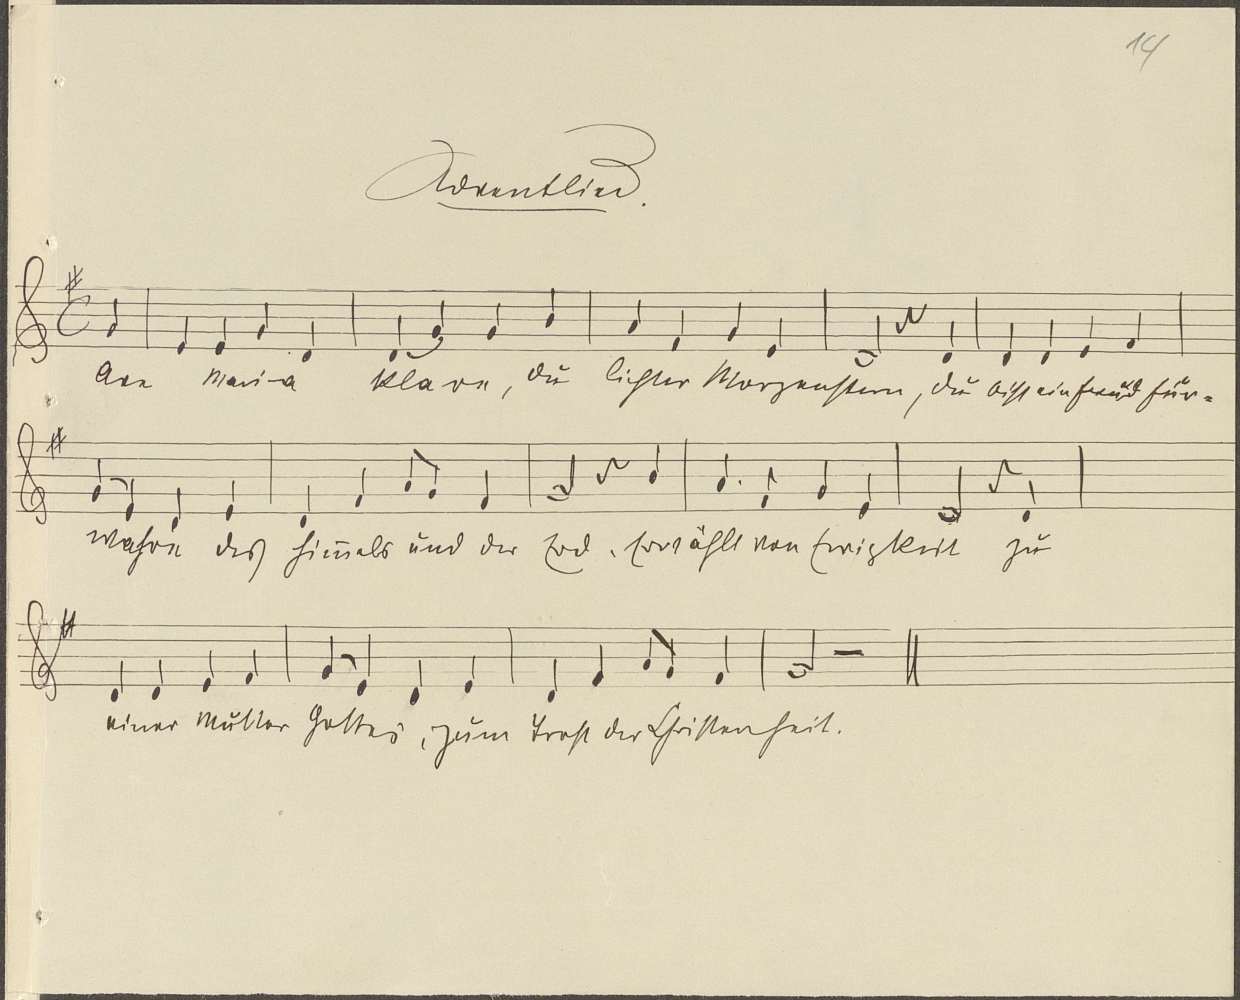 14
Adventlied.
Ave Mari-a klare, du lichter Morgenstern, du bist ein freud für-
wahre des Himmels und der Erd, Erwählt von Ewigkeit zu
einer Mutter Gottes, zum Trost der Christenheit.